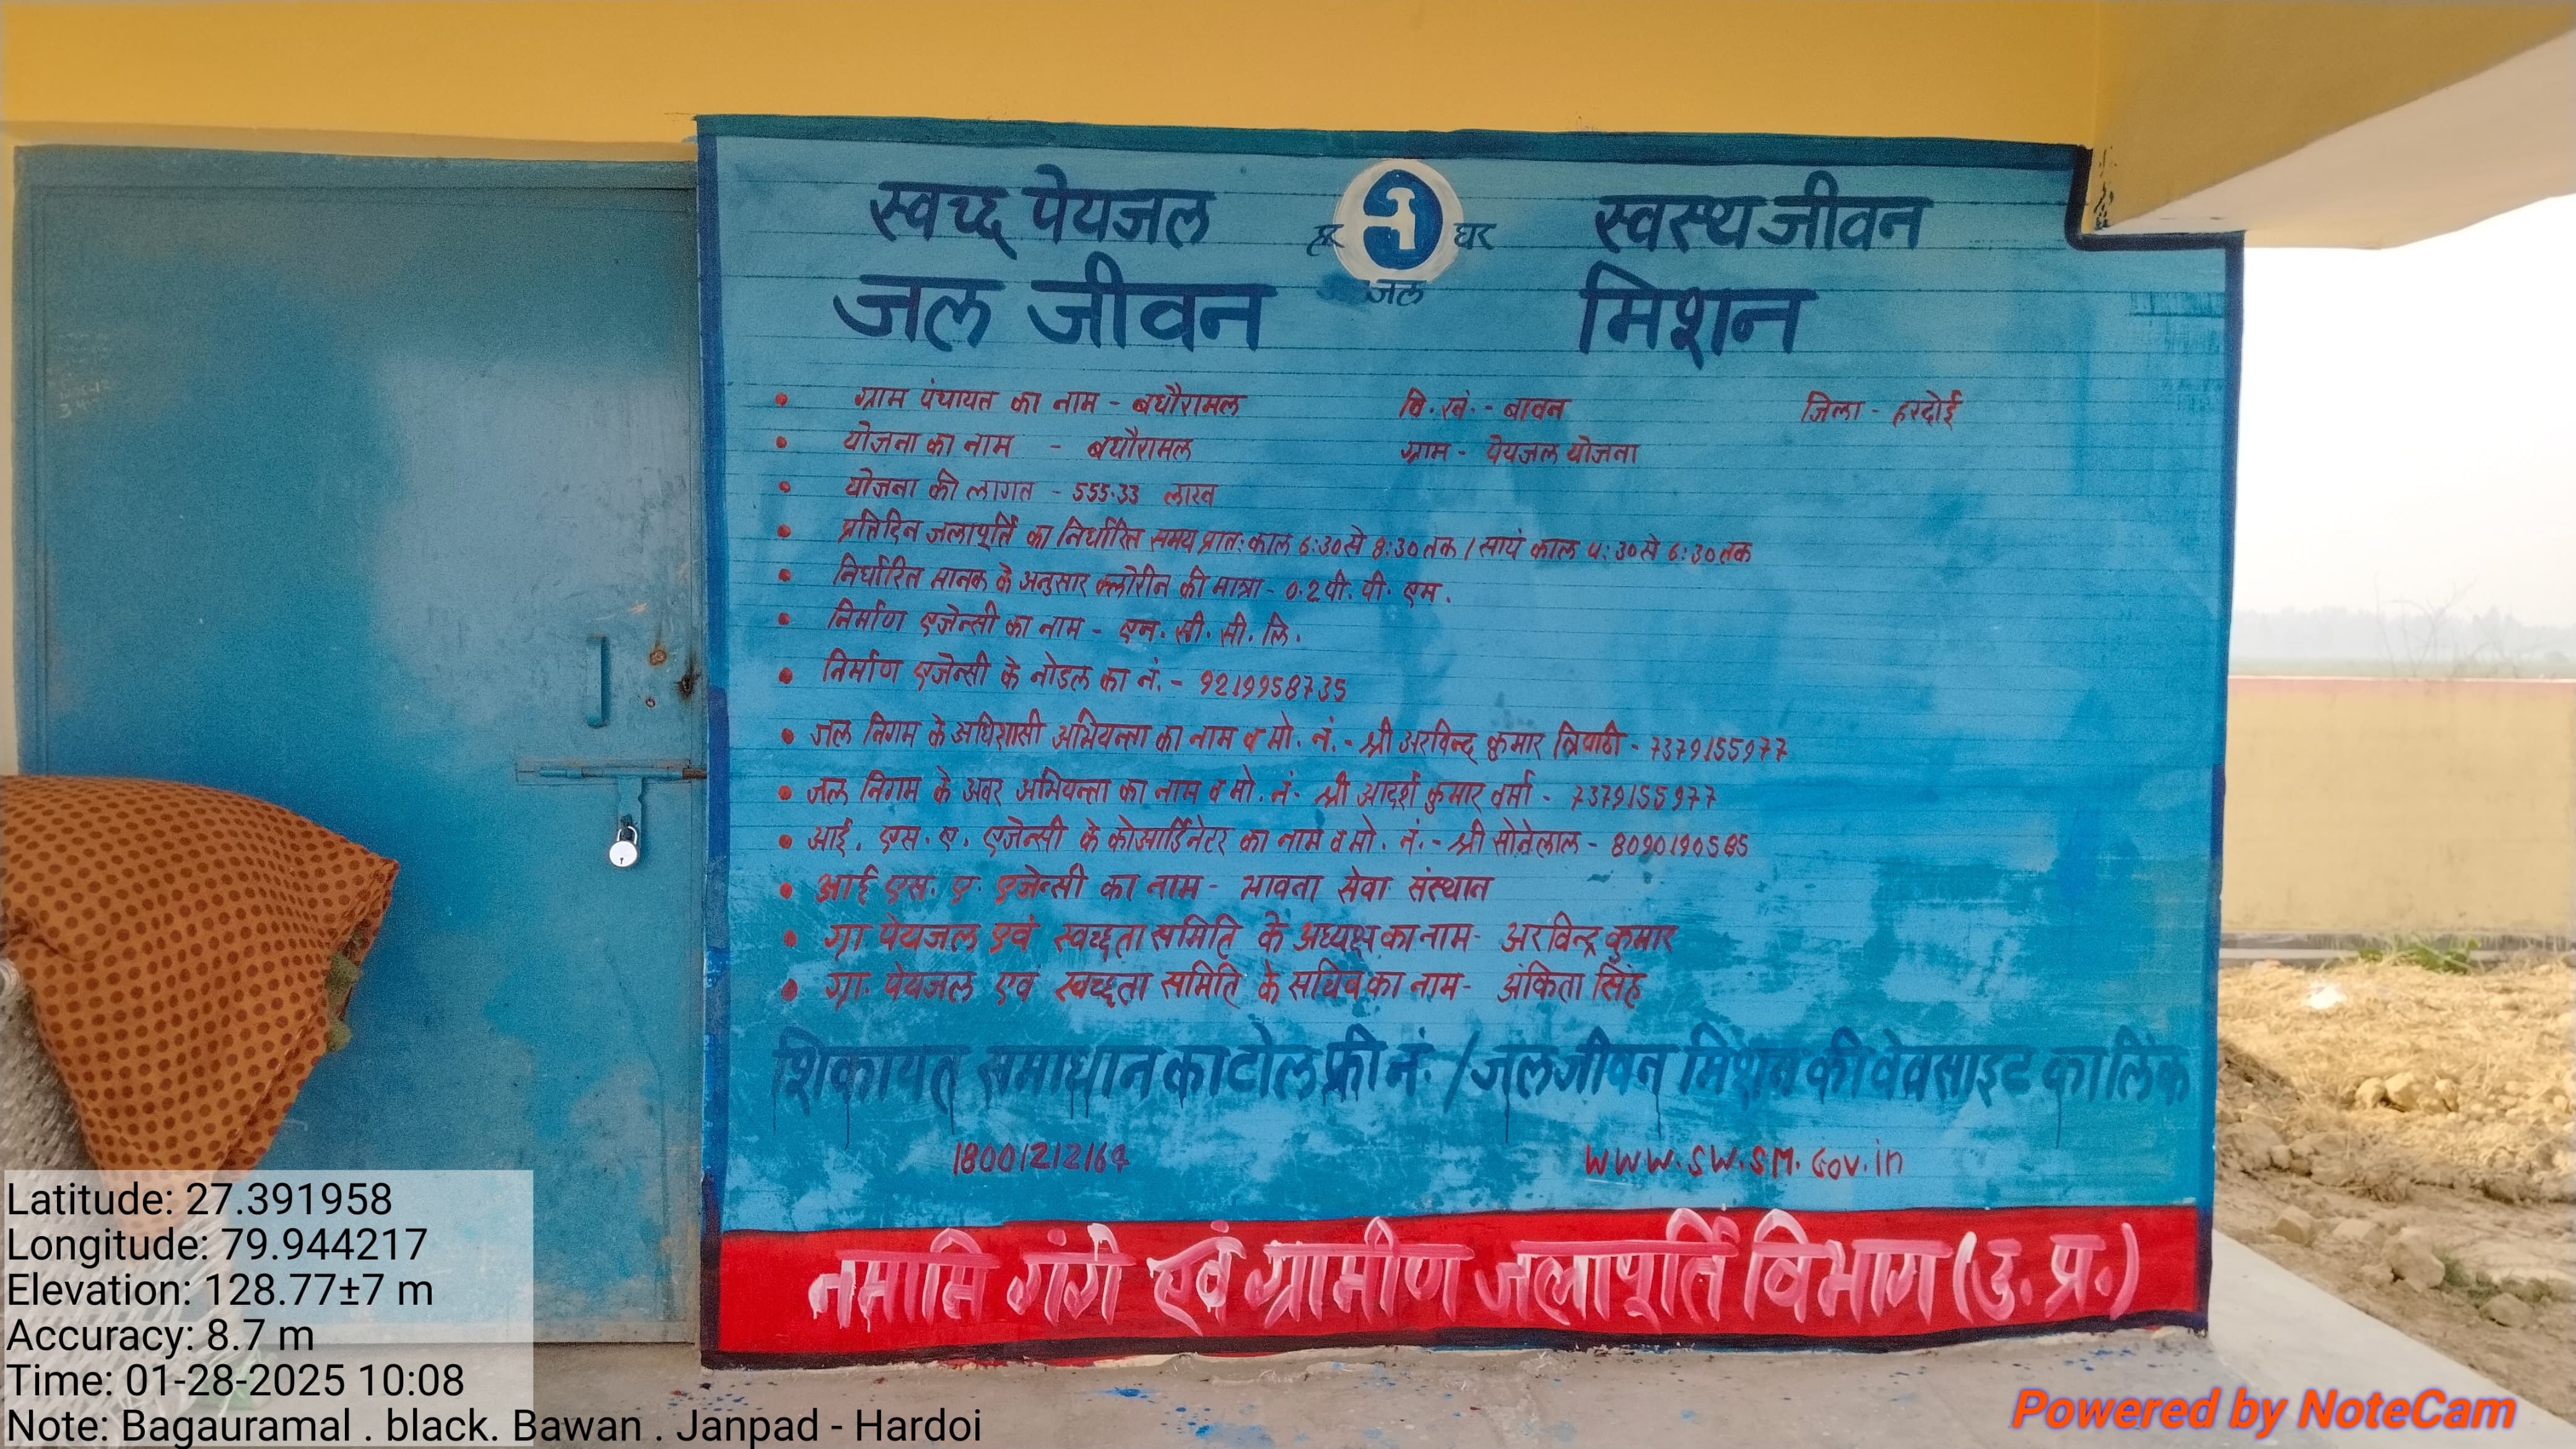 स्वच्छ पेयजल हर घर जल स्वस्थ जीवन
जल जीवन मिशन
• ग्राम पंचायत का नाम - बघौरामल वि.खं. - बावन जिला - हरदोई
• योजना का नाम - बघौरामल ग्राम - पेयजल योजना
• योजना की लागत - 555.33 लाख
• प्रतिदिन जलापूर्ति का निर्धारित समय प्रातः काल 6:30 से 8:30 तक / सायं काल 4:30 से 6:30 तक
• निर्धारित मानक के अनुसार क्लोरीन की मात्रा - 0.2 पी. पी. एम.
• निर्माण एजेन्सी का नाम - एन. सी. सी. लि.
• निर्माण एजेन्सी के नोडल का नं. - 9219958735
• जल निगम के अधिशासी अभियन्ता का नाम व मो. नं. - श्री अरविन्द कुमार त्रिपाठी - 7379155977
• जल निगम के अवर अभियन्ता का नाम व मो. नं - श्री आदर्श कुमार वर्मा - 7379155977
• आई. एस. ए. एजेन्सी के कोआर्डिनेटर का नाम व मो. नं. - श्री सोनेलाल -
• आई एस. ए. एजेन्सी का नाम - भावना सेवा संस्थान
• ग्रा पेयजल एवं स्वच्छता समिति के अध्यक्ष का नाम - अरविन्द्र कुमार
• ग्रा. पेयजल एवं स्वच्छता समिति के सचिव का नाम - अंकिता सिंह
शिकायत समाधान का टोल फ्री नं. / जल जीवन मिशन की वेवसाइट का लिंक
18001212164 www.sw.sm.Gov.in
नमामि गंगे एवं ग्रामीण जलापूर्ति विभाग (उ. प्र.)
Latitude: 27.391958
Longitude: 79.944217
Elevation: 128.77±7 m
Accuracy: 8.7 m
Time: 01-28-2025 10:08
Note: Bagauramal . black. Bawan . Janpad - Hardoi
Powered by NoteCam